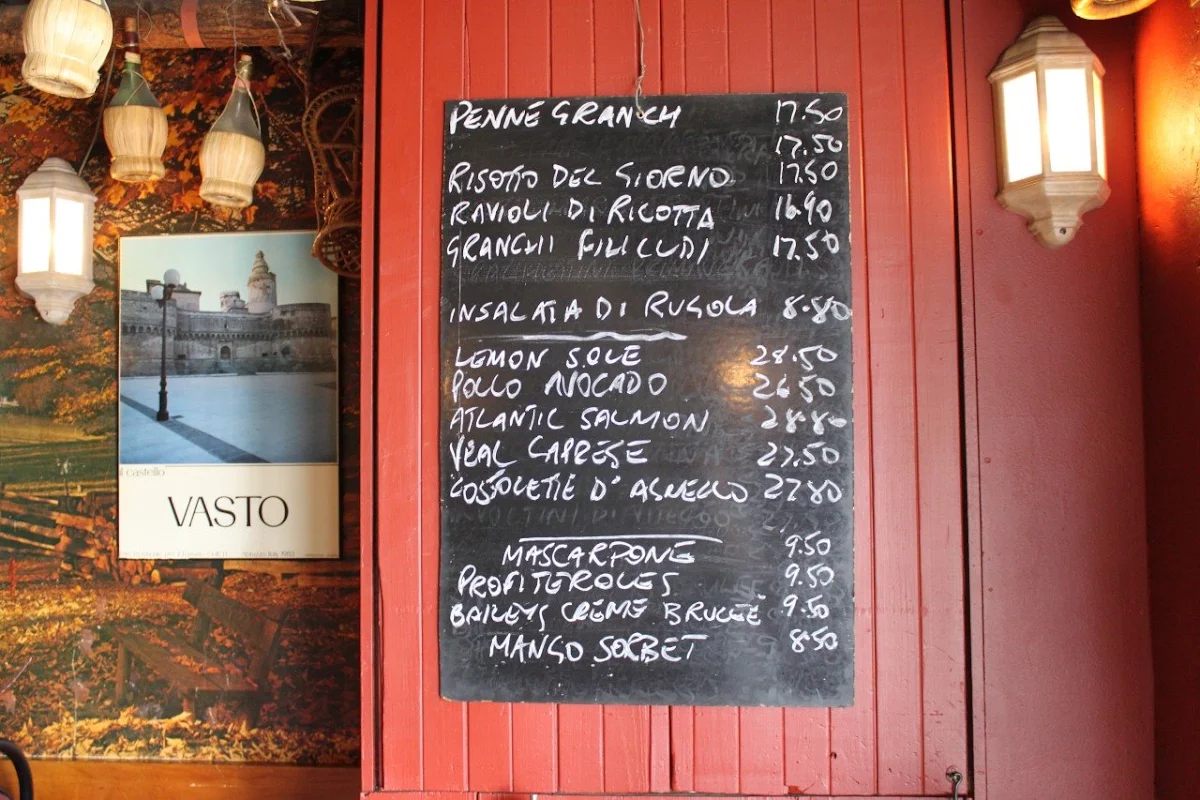 PENNE GRANCHI 17.50
17.50
RISOTTO DEL GIORNO 17.50
RAVIOLI DI RICOTTA 16.90
GRANCHI FILICUDI 17.50
INSALATA DI RUGOLA 8.80
LEMON SOLE 28.50
POLLO AVOCADO 26.50
ATLANTIC SALMON 28.80
VEAL CAPRESE 27.50
COSTOLETTE D'AGNELLO 27.80
MASCARPONE 9.50
PROFITEROLES 9.50
BAILEYS CREME BRULEÉ 9.50
MANGO SORBET 8.50
il castello
VASTO